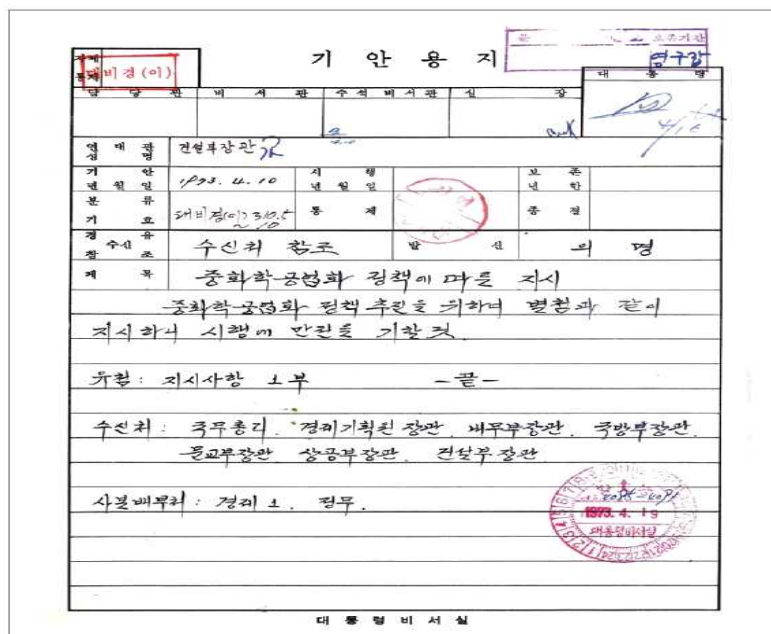 기 안 용 지
보존기간
영구
자체
통제
대비경(이)
대 통 령
담 당 관 비 서 관 수석비서관 실 장
4/16
연대관
성 명
건설부장관
기 안
년 월 일
1973. 4. 10
시 행
년 월 일
보 존
년 한
분 류
기 호
대비경(이)
통 제
종 결
경 유
수신
참 조
수신처 참조
발 신
의 명
제 목 중화학공업화 정책에 따른 지시
중화학공업화 정책 추진을 위하여 별첨과 같이
지시하니 시행에 만전을 기할 것.
유첨: 지시사항 1부 -끝-
수신처: 국무총리. 경제기획원 장관. 내무부장관. 국방부장관.
문교부장관. 상공부장관. 건설부장관.
사본배부처: 경제 1. 정무.
1973. 4. 19
대통령비서실
대 통 령 비 서 실